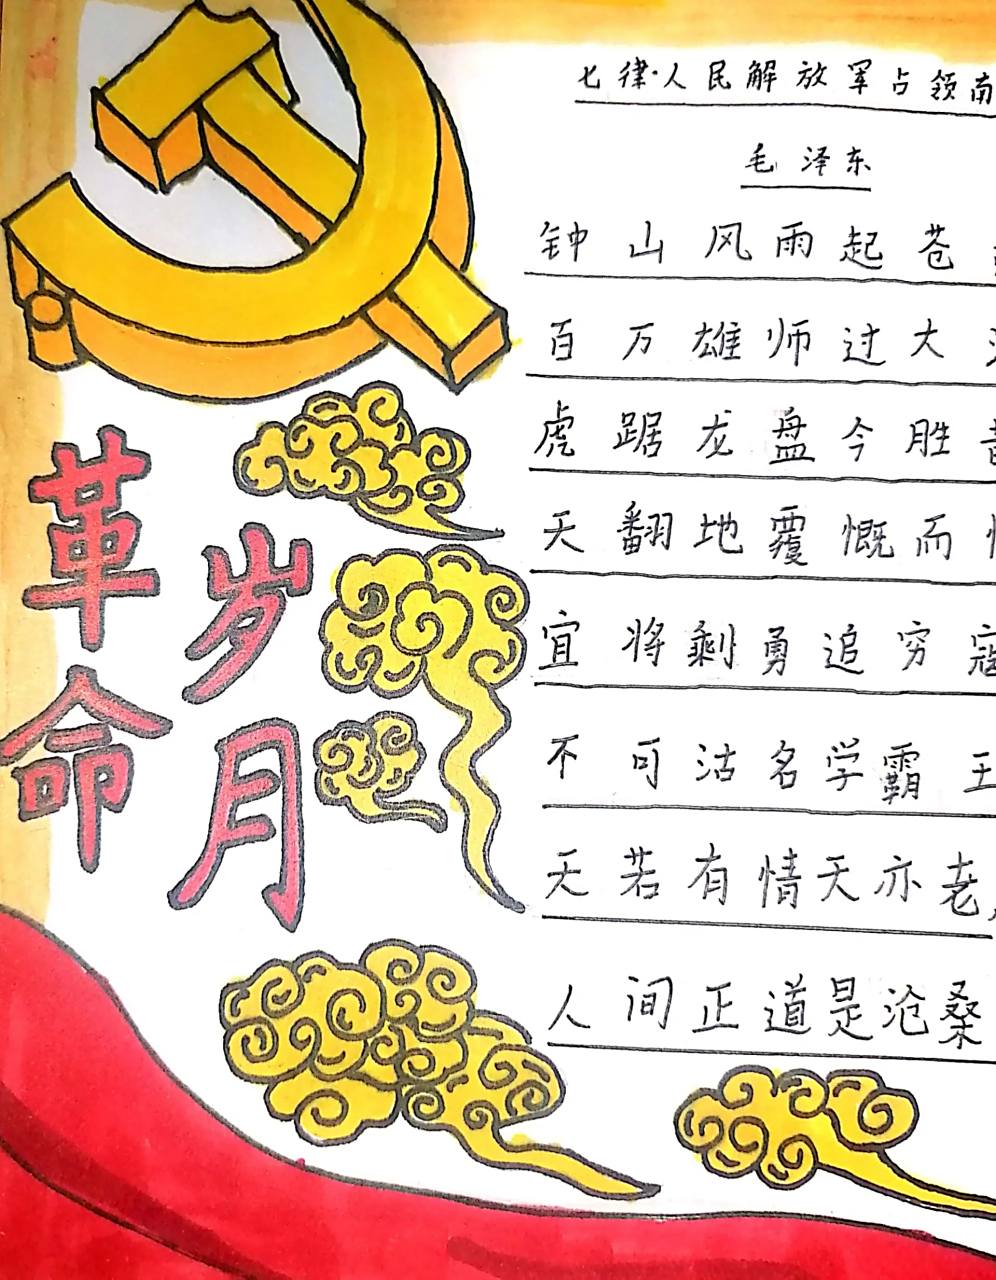 七律·人民解放军占领南
毛泽东
钟山风雨起苍
百万雄师过大
虎踞龙盘今胜
天翻地覆慨而
宜将剩勇追穷寇
不可沽名学霸王
天若有情天亦老
人间正道是沧桑
革命
岁月